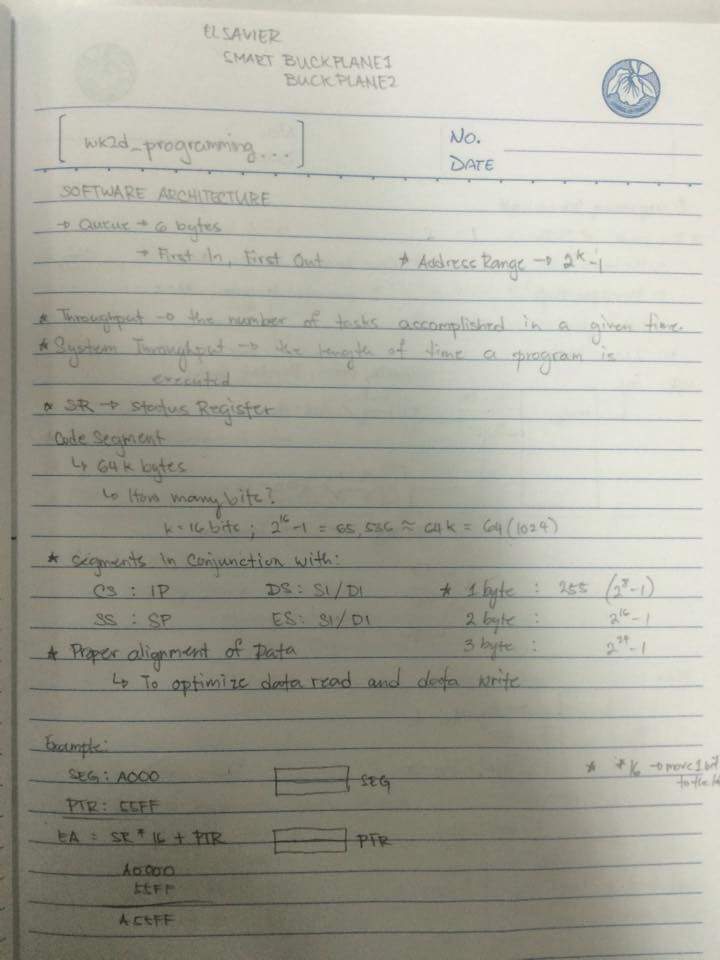 ELSAVIER
SMART BUCKPLANE1
BUCKPLANE2
[wk2d_programming...]
NO.
DATE
SOFTWARE ARCHITECTURE
→ Queue → 6 bytes
→ First In, First Out * Address Range → 2^k-1
* Throughput → the number of tasks accomplished in a given time.
* System Throughput → the length of time a program is
executed
* SR → Status Register
Code Segment
↳ 64k bytes
↳ How many bits?
k = 16 bits ; 2^16-1 = 65,536 ≈ 64k = 64(1024)
* Segments in conjunction with:
CS : IP DS : SI/DI * 1 byte : 255 (2^8-1)
SS : SP ES : SI/DI 2 byte : 2^16-1
* Proper alignment of Data 3 byte : 2^24-1
↳ To optimize data read and data write
Example:
SEG : A000 SEG * *16 → move 1 bit
to the
PTR : 55FF
EA = SR * 16 + PTR PTR
A0000
55FF
A55FF